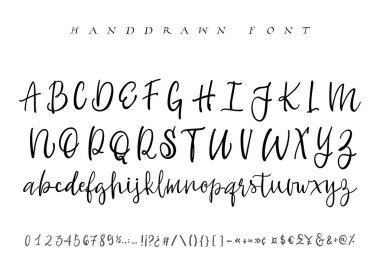 HANDDRAWN FONT
ABCDEFGHIJKLM
NOPQRSTUVWXYZ
abcdefghijklmnopqrstuvwxyz
0123456789